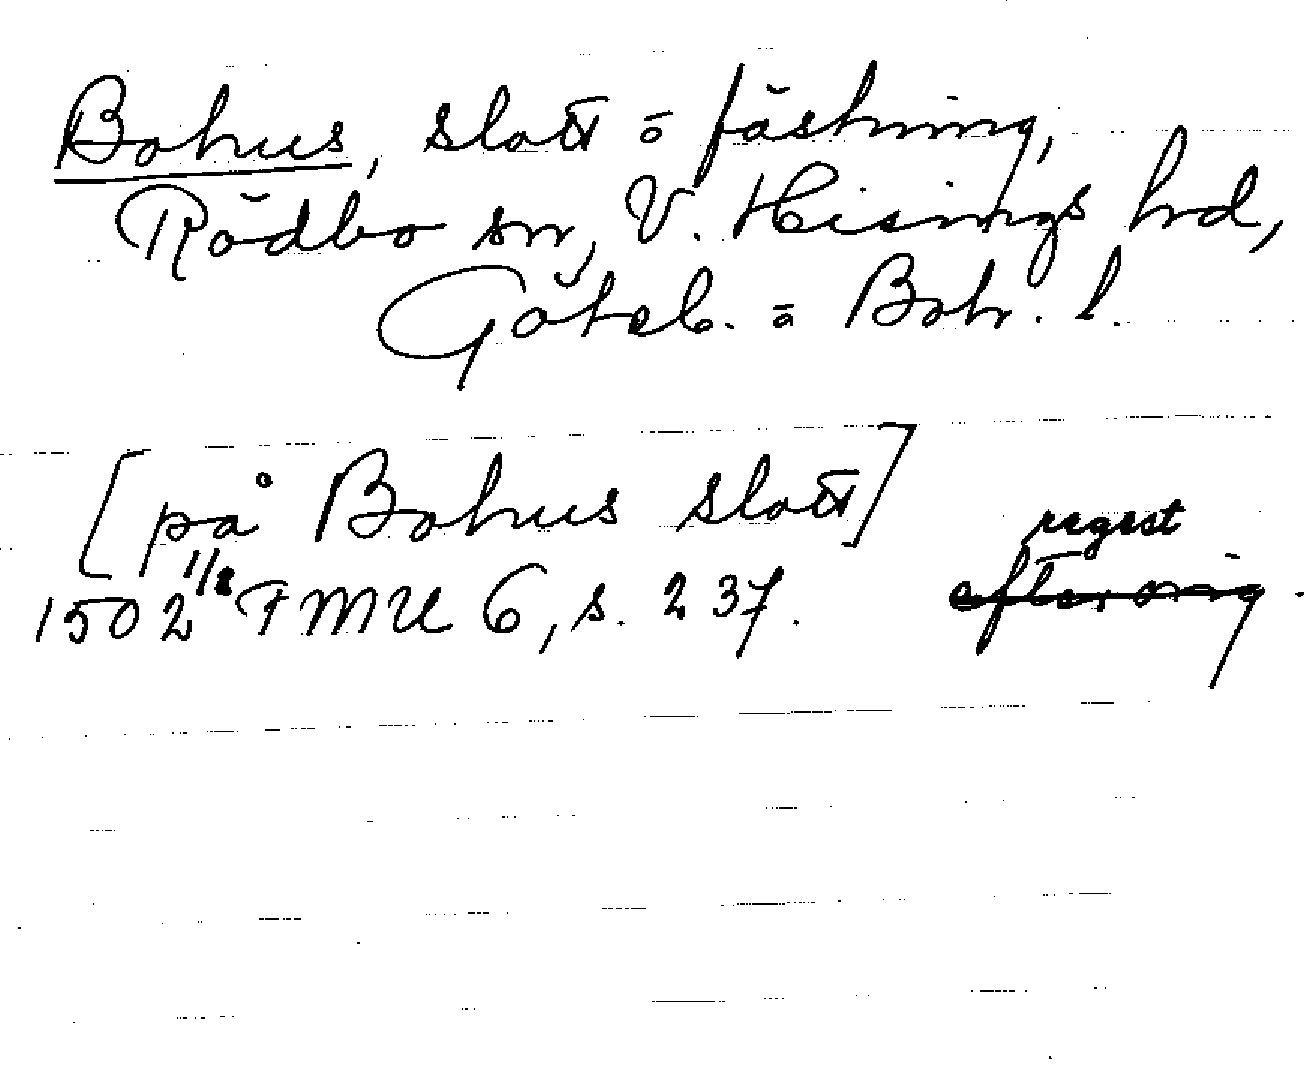 Bohus, slott o fästning,
Rödbo sn, V. Hisings hrd,
Göteb. o Boh. l.
[på Bohus slott]
regest
1502 1/8 FMU 6, s. 237. efter orig.